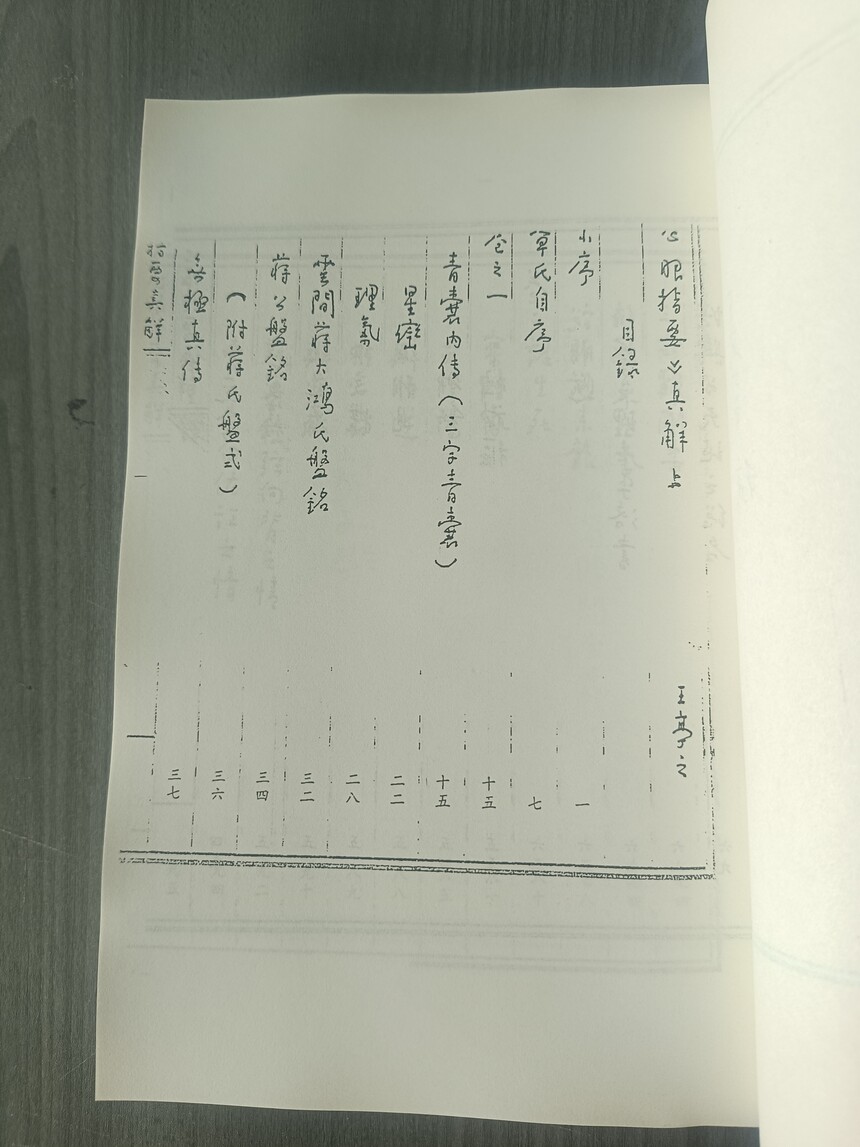 心眼指要》真解上 王亭之
目錄
小序 一
單氏自序 七
卷之一 十五
青囊內傳（三字青囊） 十五
星巒 二二
理氣 二八
雲間蔣大鴻氏盤銘 三二
蔣公盤銘 三四
（附蔣氏盤式） 三六
無極真傳 三七
指要真解
一